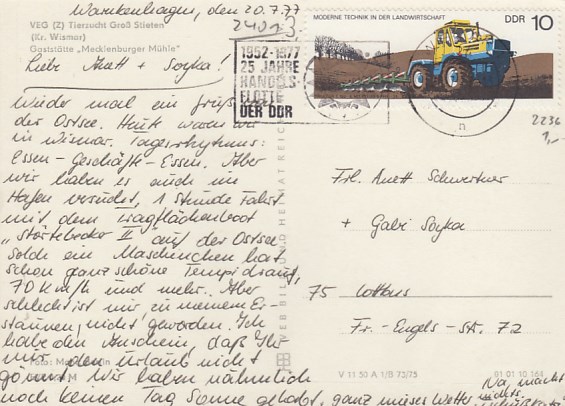 Wanckenhagen, den 20.7.77
VEG (Z) Tierzucht Groß Stieten
(Kr. Wismar)
Gaststätte „Mecklenburger Mühle"
2401
3
Liebe Anett + Soyka!
Wieder mal ein Gruß von
der Ostsee. Heute waren wir
in Wismar. Tagesrhytmus:
Essen - Geschäfte - Essen. Aber
wir haben es auch im
Hafen versucht, 1 Stunde Fahrt
mit dem Tragflächenboot
„Störtebecker II" auf der Ostsee
solch ein Maschinchen hat
schon ganz schöne Tempi drauf,
70 km/h und mehr. Aber
schlecht ist mir, zu meinem Er-
staunen, nicht geworden. Ich
habe den Anschein, daß Ihr
mir den Urlaub nicht
gönnt. Wir haben nähmlich
noch keinen Tag Sonne gehabt, ganz mieses Wetter
Na, macht
nichts
Foto:
M
MODERNE TECHNIK IN DER LANDWIRTSCHAFT
DDR 10
1952-1977
25 JAHRE
HANDELS-
FLOTTE
DER DDR
n
2236
1,-
VEB BILD UND HEIMAT REICH
Frl. Anett Schwertner
+ Gabi Soyka
75 Cottbus
Fr.-Engels-Str. 72
V 11 50 A 1/B 73/75
01 01 10 164